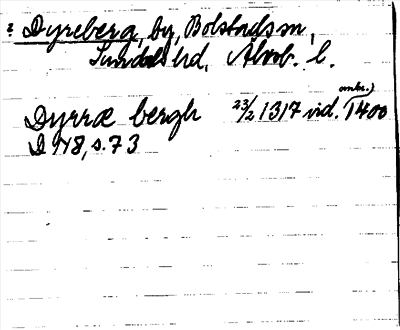 2 Dyreberg, by, Bolstads sn,
Sundals hd, Älvsb. l.
Dyrræ bergh 23/2 1317 vid. (omkr.) 1400
D 948, s. 73